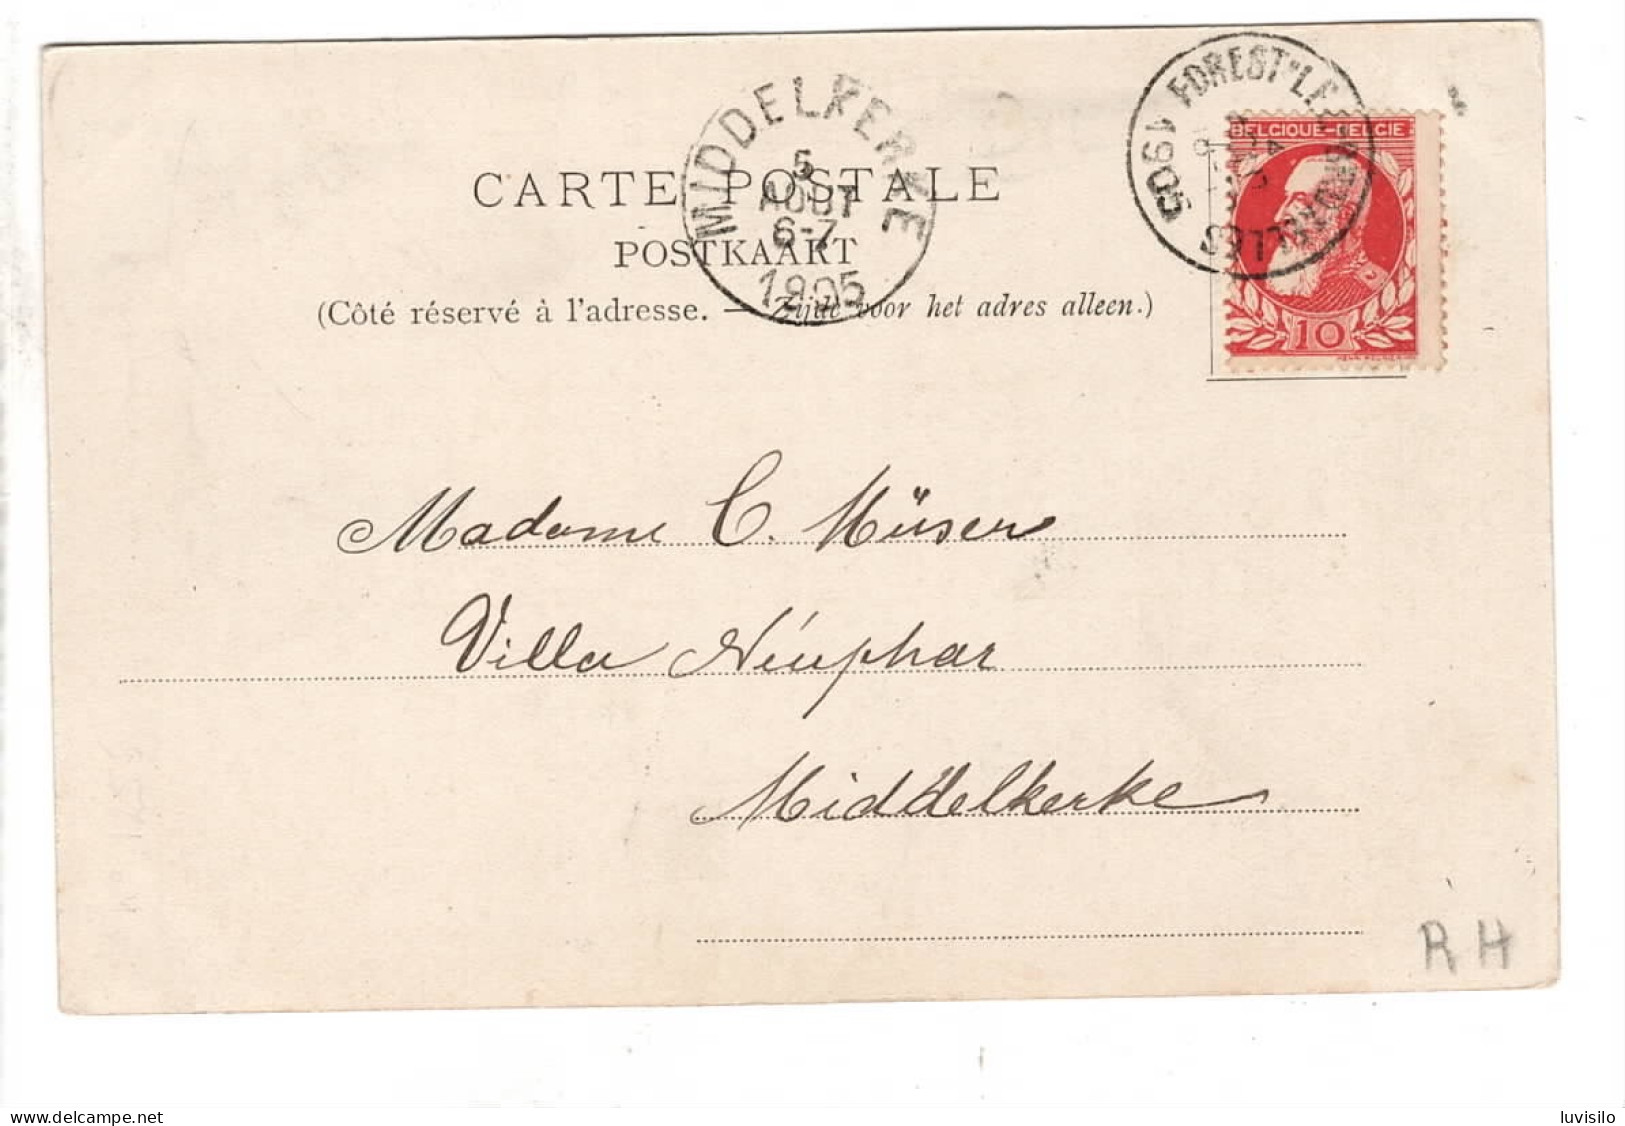 FOREST (LEZ-BRUXELLES)
1905
BELGIQUE-BELGIE
10
MIDDELKERKE
5
AOUT
6-7
1905
CARTE POSTALE
POSTKAART
(Côté réservé à l'adresse. — Zijde voor het adres alleen.)
Madame C. Müser
Villa Nénuphar
Middelkerke
RH
delcampe.net
luvisilo